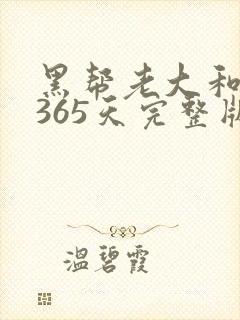 黑帮老大和
365天完整版
温碧霞